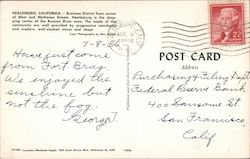 HEALDSBURG, CALIFORNIA — Business District from corner
of West and Matheson Streets. Healdsburg is the shop-
ping center of the Russian River area. The needs of the
community are well provided by progressive merchants
and modern, well-stocked stores and shops.
7-8-56
Have just come
from Fort Brag
We enjoyed the
sunshine but
not the fog.
George
POST CARD
Address
Purchasing & Filing Dept
Federal Reserve Bank
400 Sansome St
San Francisco
Calif